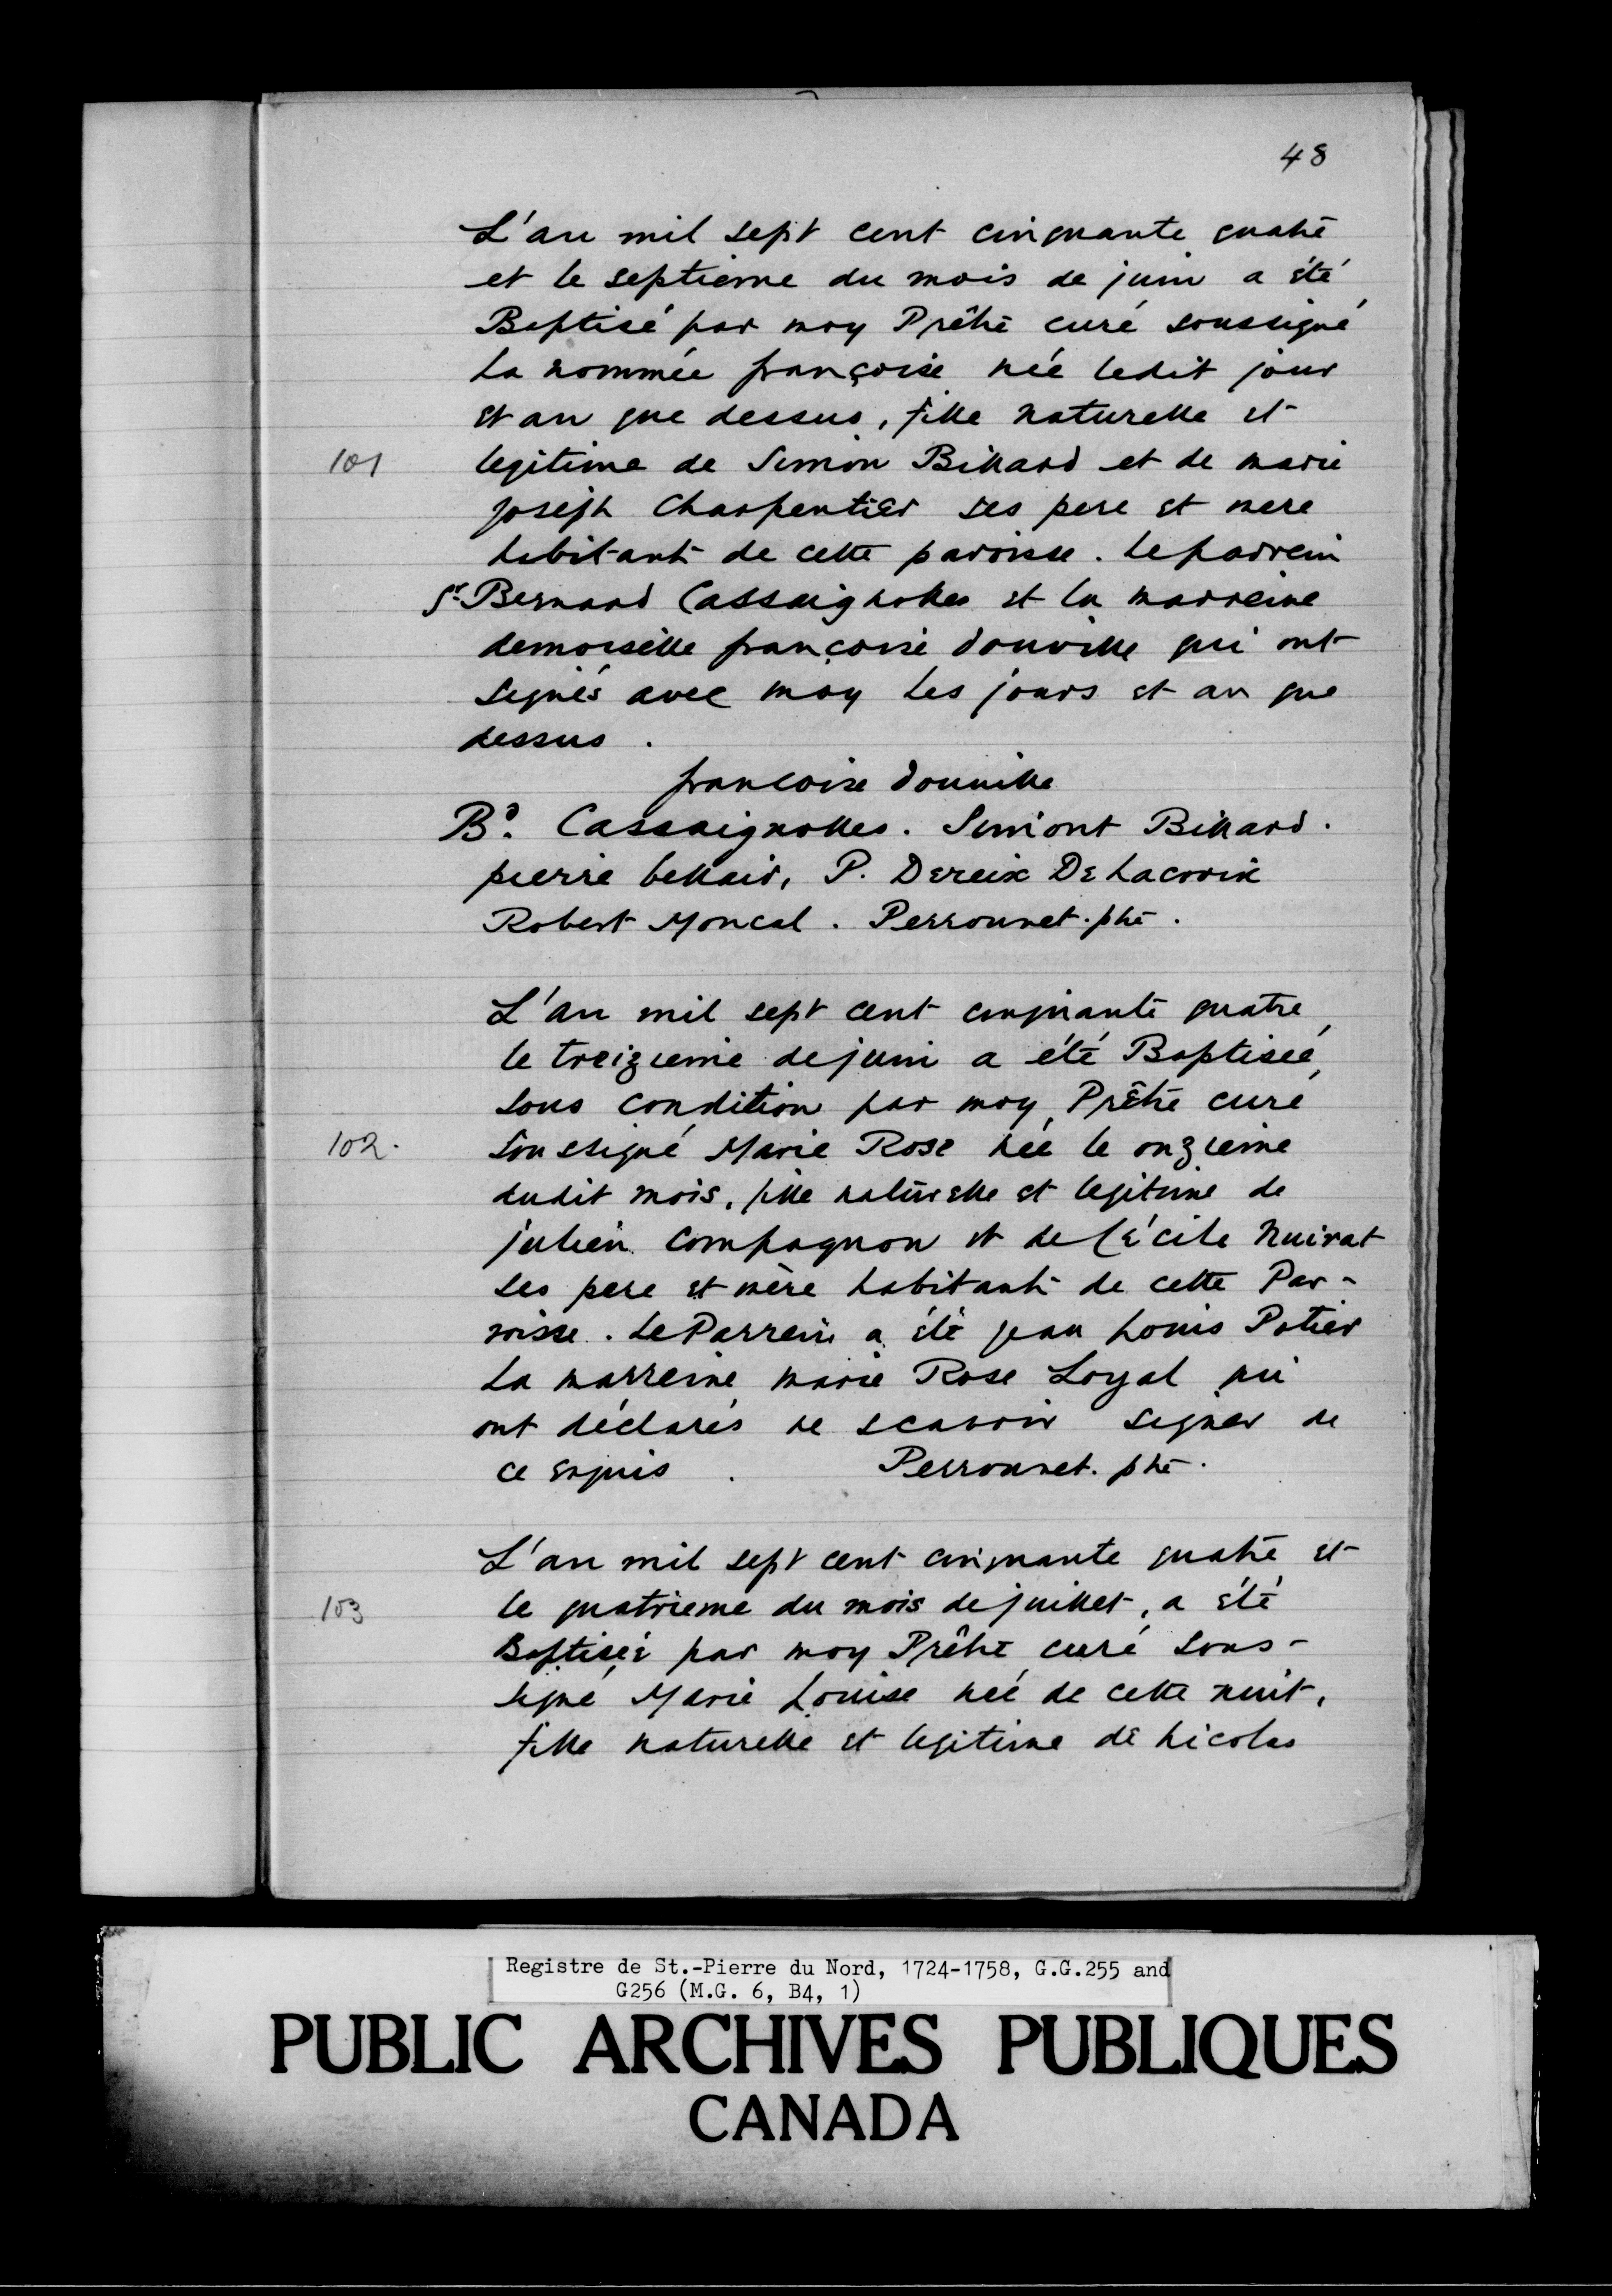 48
L'an mil sept cent cinquante quatre
et le septieme du mois de juin a été
Baptisé par moy Prêtre curé soussigné
la nommée françoise née ledit jour
et an que dessus, fille naturelle et
101 legitime de Simon Billard et de marie
joseph Charpentier ses pere et mere
habitant de cette paroisse. le parrein
Sr. Bernard Cassaignolles et la marreine
demoiselle françoise douville qui ont
signés avec moy les jours et an que
dessus.
francoise douville
Bd. Cassaignolles. Simont Billard.
pierre bellair, P. Dereix De Lacroix
Robert Moncal. Perronnet. ptre.
L'an mil sept cent cinquante quatre,
le treizieme de juin a été Baptiseé,
sous condition par moy, Prêtre curé
102. soussigné Marie Rose née le onzieme
dudit mois, fille naturelle et legitime de
julien Compagnon et de Cécile Nuirat
ses pere et mère habitant de cette Par-
roisse. Le Parrein a été jean Louis Potier
la marreine marie Rose Loyal qui
ont déclarés ne scavoir signer de
ce enquis. Perronnet. ptre.
L'an mil sept cent cinquante quatre et
103 le quatrieme du mois de juillet, a été
Baptiseé par moy Prêtre, curé sous-
signé Marie Louise neé de cette nuit,
fille naturelle et legitime de nicolas
Registre de St.-Pierre du Nord, 1724-1758, G.G.255 and
G256 (M.G. 6, B4, 1)
PUBLIC ARCHIVES PUBLIQUES
CANADA